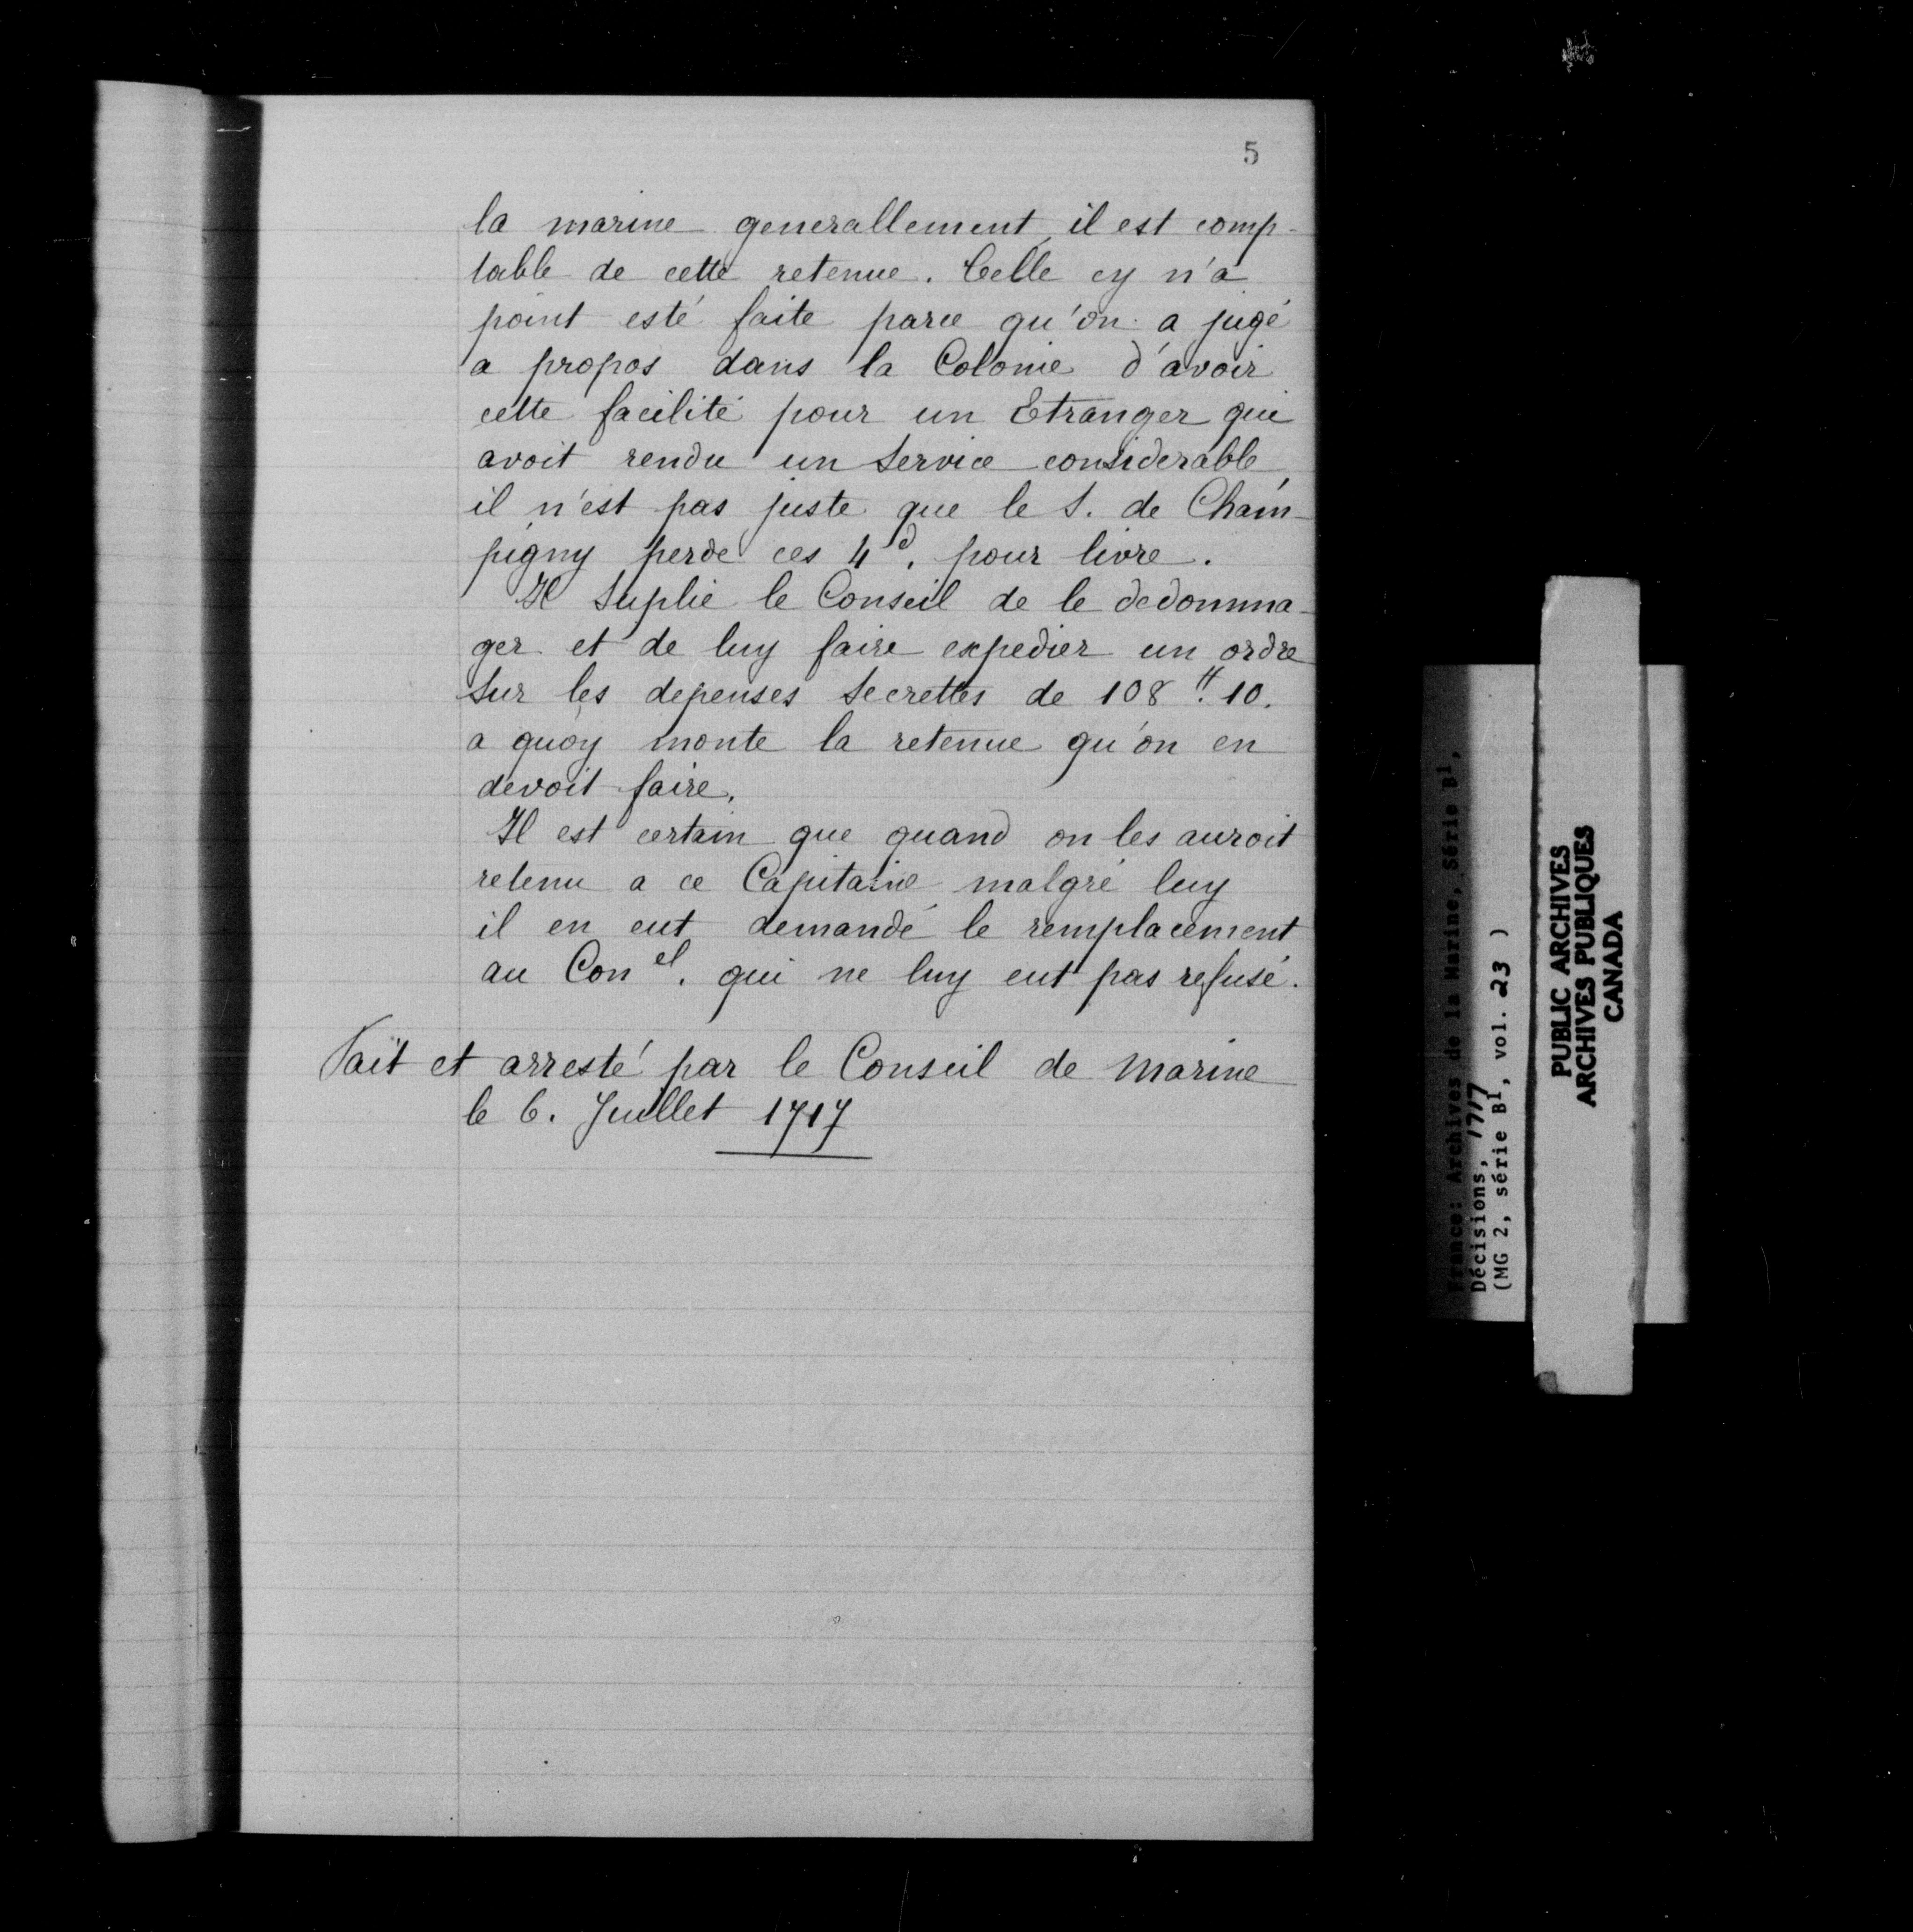 5
la marine generallement, il est comp-
table de cette retenue. Celle cy n'a
point esté faite parce qu'on a jugé
a propos dans la Colonie d'avoir
cette facilité pour un Etranger qui
avoit rendu un service considerable,
il n'est pas juste que le S. de Cham-
pigny perde ces 4d. pour livre.
Il suplie le Conseil de le dedomma-
ger et de luy faire expedier un ordre
sur les depenses secrettes de 108 ₶. 10.
a quoy monte la retenue qu'on en
devoit faire.
Il est certain que quand on les auroit
retenu a ce Capitaine malgré luy
il en eut demandé le remplacement
au Con el. qui ne luy eut pas refusé.
Fait et arresté par le Conseil de Marine
le 6. Juillet 1717
France: Archives de la Marine, Série B1,
Décisions, 1717
(MG 2, série B1, vol. 23 )
PUBLIC ARCHIVES
ARCHIVES PUBLIQUES
CANADA